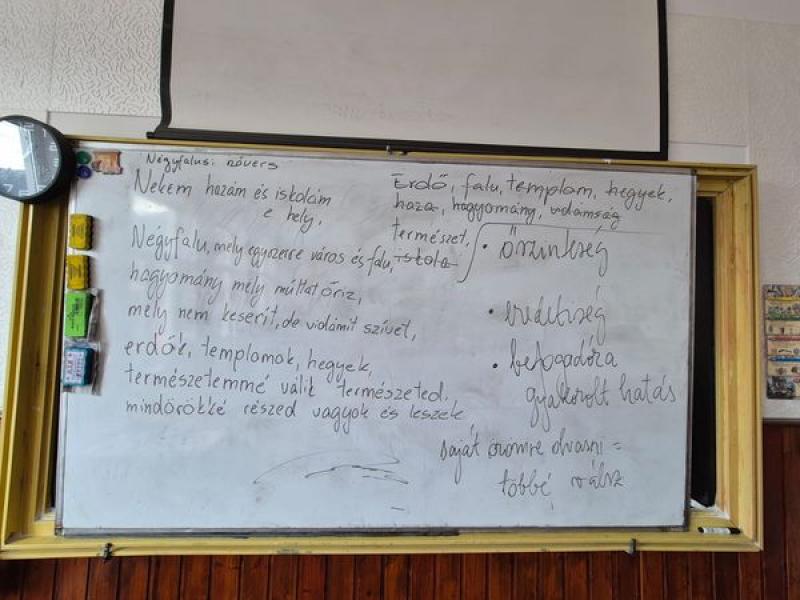 Négyfalusi nővers
Nekem hazám és iskolám
e hely,
Négyfalu, mely egyszerre város és falu,
hagyomány mely múltat őriz,
mely nem keserít, de vidámít szívet,
erdők, templomok, hegyek,
természetemmé válik természeted.
mindörökké részed vagyok és leszek
Erdő, falu, templom, hegyek,
haza, hagyomány, vidámság
természet,
iskola
• őszinteség
• eredetiség
• befogadóra
gyakorolt hatás
saját örömre olvasni =
többé válsz